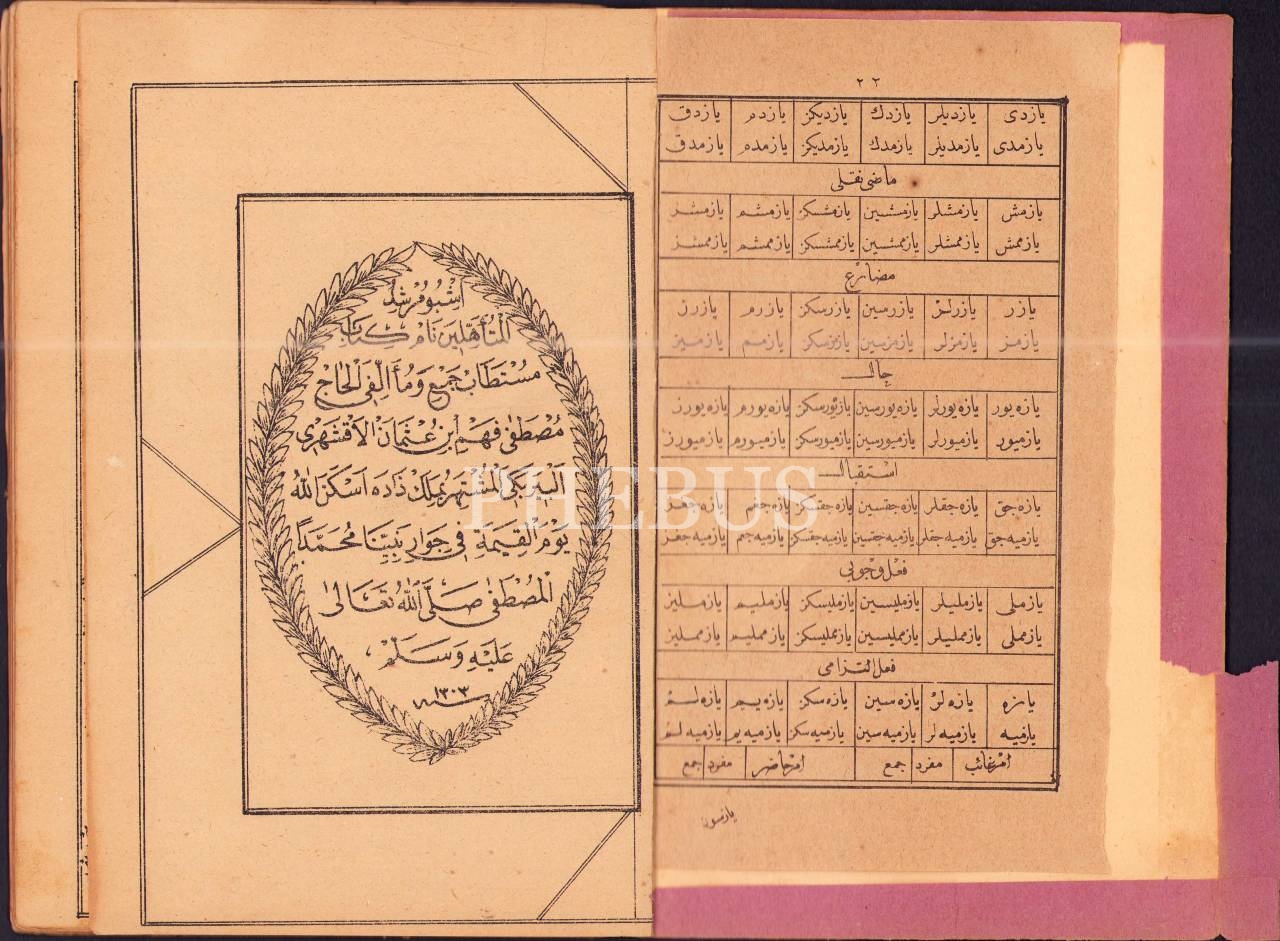 ٢٢
يازدى يازديلر يازدك يازديكز يازدم يازدق
يازمدى يازمديلر يازمدك يازمديكز يازمدم يازمدق
ماضئ نقلى
يازمش يازمشلر يازمشسين يازمشسكز يازمشم يازمشز
يازممش يازممشلر يازممشسين يازممشسكز يازممشم يازممشز
مضارع
يازر يازرلر يازرسين يازرسكز يازرم يازرز
يازمز يازمزلر يازمزسين يازمزسكز يازمم يازميز
حال
يازه يور يازه يورلر يازه يورسين يازيورسكز يازه يورم يازه يورز
يازميور يازميورلر يازميورسين يازميورسكز يازميورم يازميورز
استقبال
يازه جق يازه جقلر يازه جقسين يازه جقسكز يازه جغم يازه جغز
يازميه جق يازميه جقلر يازميه جقسين يازميه جقسكز يازميه جغم يازميه جغز
فعل وجوبى
يازملى يازمليلر يازمليسين يازمليسكز يازمليم يازمليز
يازمملى يازممليلر يازممليسين يازممليسكز يازممليم يازممليز
فعل التزامى
يازه يازه لر يازه سين يازه سكز يازه يم يازه لم
يازميه يازميه لر يازميه سين يازميه سكز يازميه يم يازميه لم
امر غائب مفرد جمع امر حاضر مفرد جمع
يازسون
اشبو مرشد
المتأهلين نام كتاب
مستطاب جمع و مؤالفى الحاج
مصطفى فهم ابن عثمان الاقشهرى
المشتهر بملك زاده اسكن الله
يوم القيمة فى جوار نبينا محمد
المصطفى صلى الله تعالى
عليه وسلم
سنه ١٣٠٣
PHEBUS